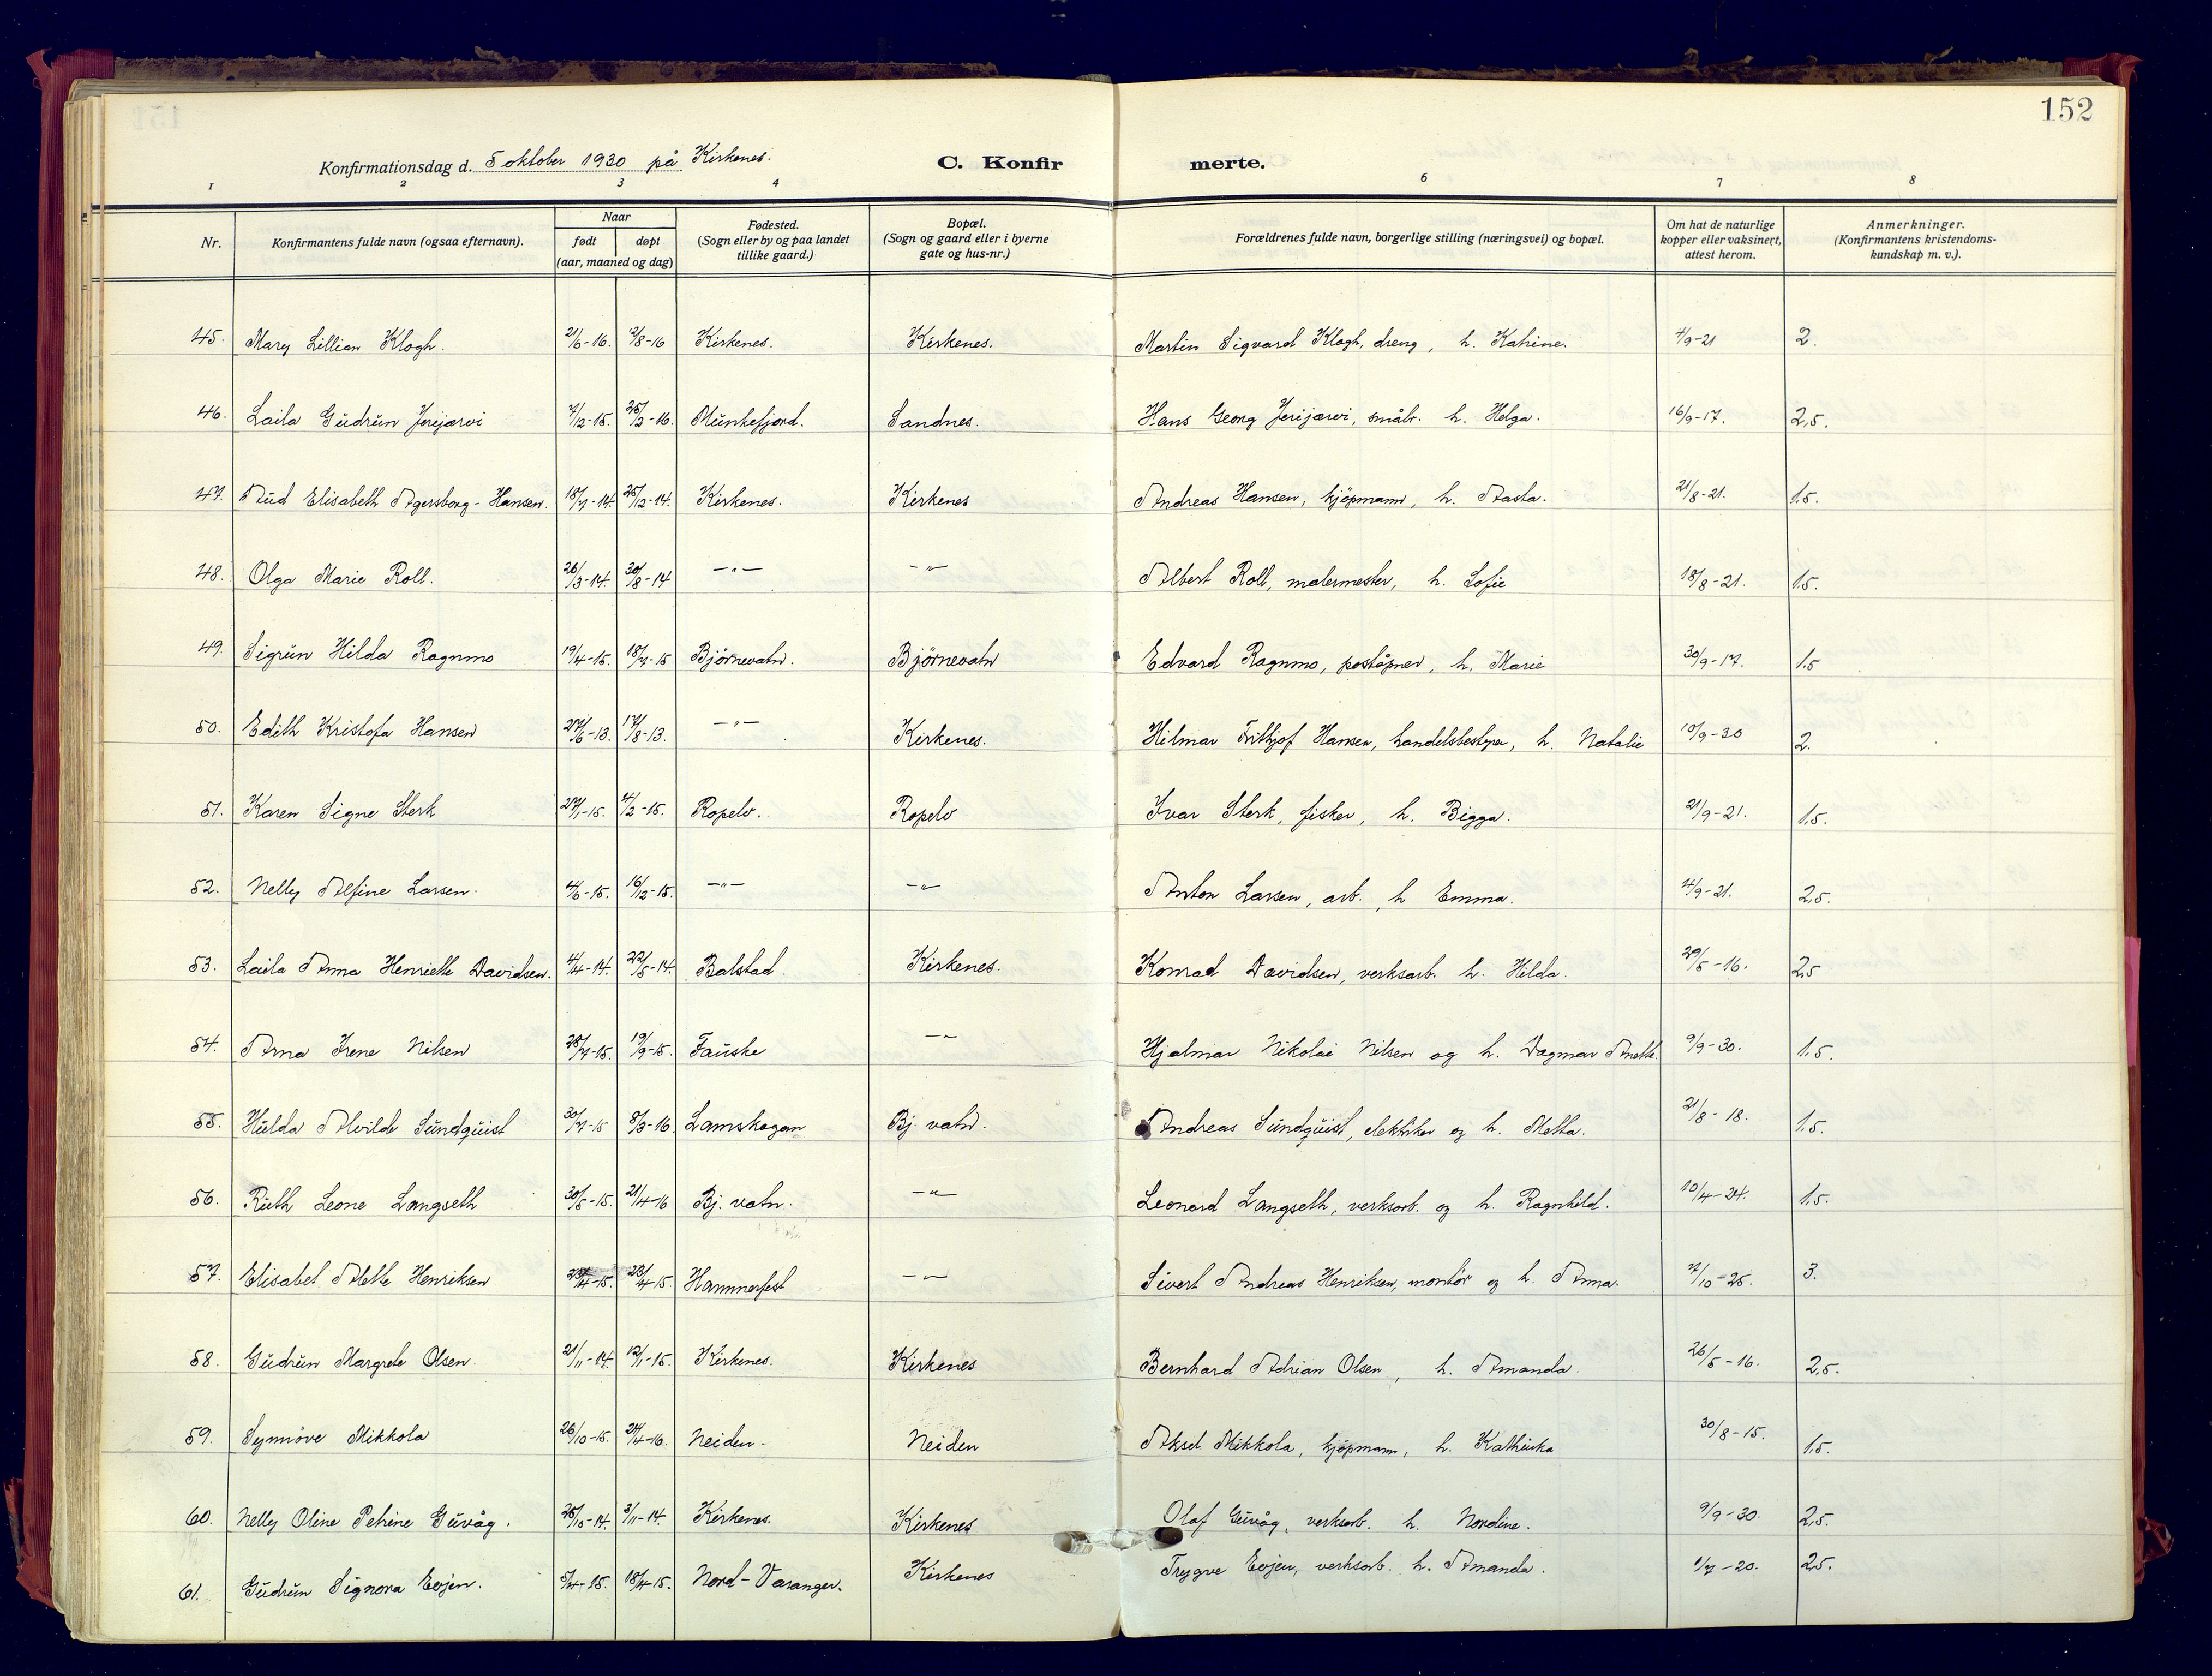 152
Konfirmationsdag d. 5 oktober 1930 på Kirkenes. C. Konfir merte.
1 2 3 4 6 7 8
Nr. Konfirmantens fulde navn (ogsaa efternavn). Naar født døpt (aar, maaned og dag) Fødested. (Sogn eller by og paa landet tillike gaard.) Bopæl. (Sogn og gaard eller i byerne gate og hus-nr.) Forældrenes fulde navn, borgerlige stilling (næringsvei) og bopæl. Om hat de naturlige kopper eller vaksinert, attest herom. Anmerkninger. (Konfirmantens kristendoms-kundskap m. v.).
45. Mary Lillian Klogh. 21/6-16. 2/8-16 Kirkenes. Kirkenes. Martin Sigvard Klogh, dreng, h. Katrine. 4/9-21 2.
46. Laila Gudrun Jerijærvi 7/12-15. 25/2-16. Munkefjord. Sandnes. Hans Georg Jerijærvi, småbr. h. Helga. 16/9-17. 2,5.
47. Aud Elisabeth Agersborg-Hansen. 18/7-14. 25/12-14. Kirkenes. Kirkenes Andreas Hansen, kjöpmann, h. Aasta. 21/8-21. 1.5.
48. Olga Marie Roll. 26/3-14. 30/8-14 —"— —"— Albert Roll, malermester, h. Sofie 18/8-21. 1.5.
49. Sigrun Hilda Ragnmo 19/4-15. 18/7-15 Björnevatn. Björnevatn Edvard Ragnmo, poståpner, h. Marie 30/9-17. 1.5
50. Edith Kristofa Hansen 27/6-13. 17/8-13. —"— Kirkenes. Hilmar Frithjof Hansen, handelsbestyrer, h. Natalie 10/9-30 2.
51. Karen Signe Sterk 27/1-15. 4/2-15. Ropelv. Ropelv Ivar Sterk, fisker, h. Bigga. 21/9-21. 1.5.
52. Nelly Alfine Larsen. 4/6-15. 16/12-15. —"— —"— Anton Larsen, arb., h Emma. 4/9-21. 2,5.
53. Laila Anna Henriette Davidsen. 4/4-14. 22/5-14. Balstad. Kirkenes. Konrad Davidsen, verksarb. h. Hilda. 29/5-16. 2,5
54. Arna Irene Nilsen 28/7-15. 19/9-15. Fauske —"— Hjalmar Nikolai Nilsen og h. Dagmar Anette. 9/9-30. 1.5.
55. Hulda Alvilde Sundquist 30/7-15 8/3-16. Lamskogan Bj. vatn. Andreas Sundquist, elektriker og h. Metta. 21/8-18. 1.5.
56. Ruth Leone Langseth 30/5-15. 21/4-16 Bj. vatn. —"— Leonard Langseth, verksarb. og h. Ragnhild. 10/4-24. 1.5.
57. Elisabet Alette Henriksen 4-15. 23/4-15. Hammerfest —"— Sivert Andreas Henriksen, montör og h. Anna. /10-25. 3.
58. Gudrun Margrete Olsen. 21/11-14. 12/1-15. Kirkenes. Kirkenes Bernhard Adrian Olsen, h. Amanda. 26/5-16. 2,5.
59. Synnöve Mikkola 26/10-15. 24/4-16. Neiden. Neiden Aksel Mikkola, kjöpmann, h. Kathinka 30/8-15. 1.5.
60. Nelly Oline Petrine Guvåg. 25/10-14. 3/11-14. Kirkenes. Kirkenes Olaf Guvåg, verksarb. h. Nordine. 9/9-30. 2,5.
61. Gudrun Signora Evjen. 5/4-15. 18/4-15. Nord-Varanger. Kirkenes Trygve Evjen, verksarb. h. Amanda. 1/7-20. 2,5.